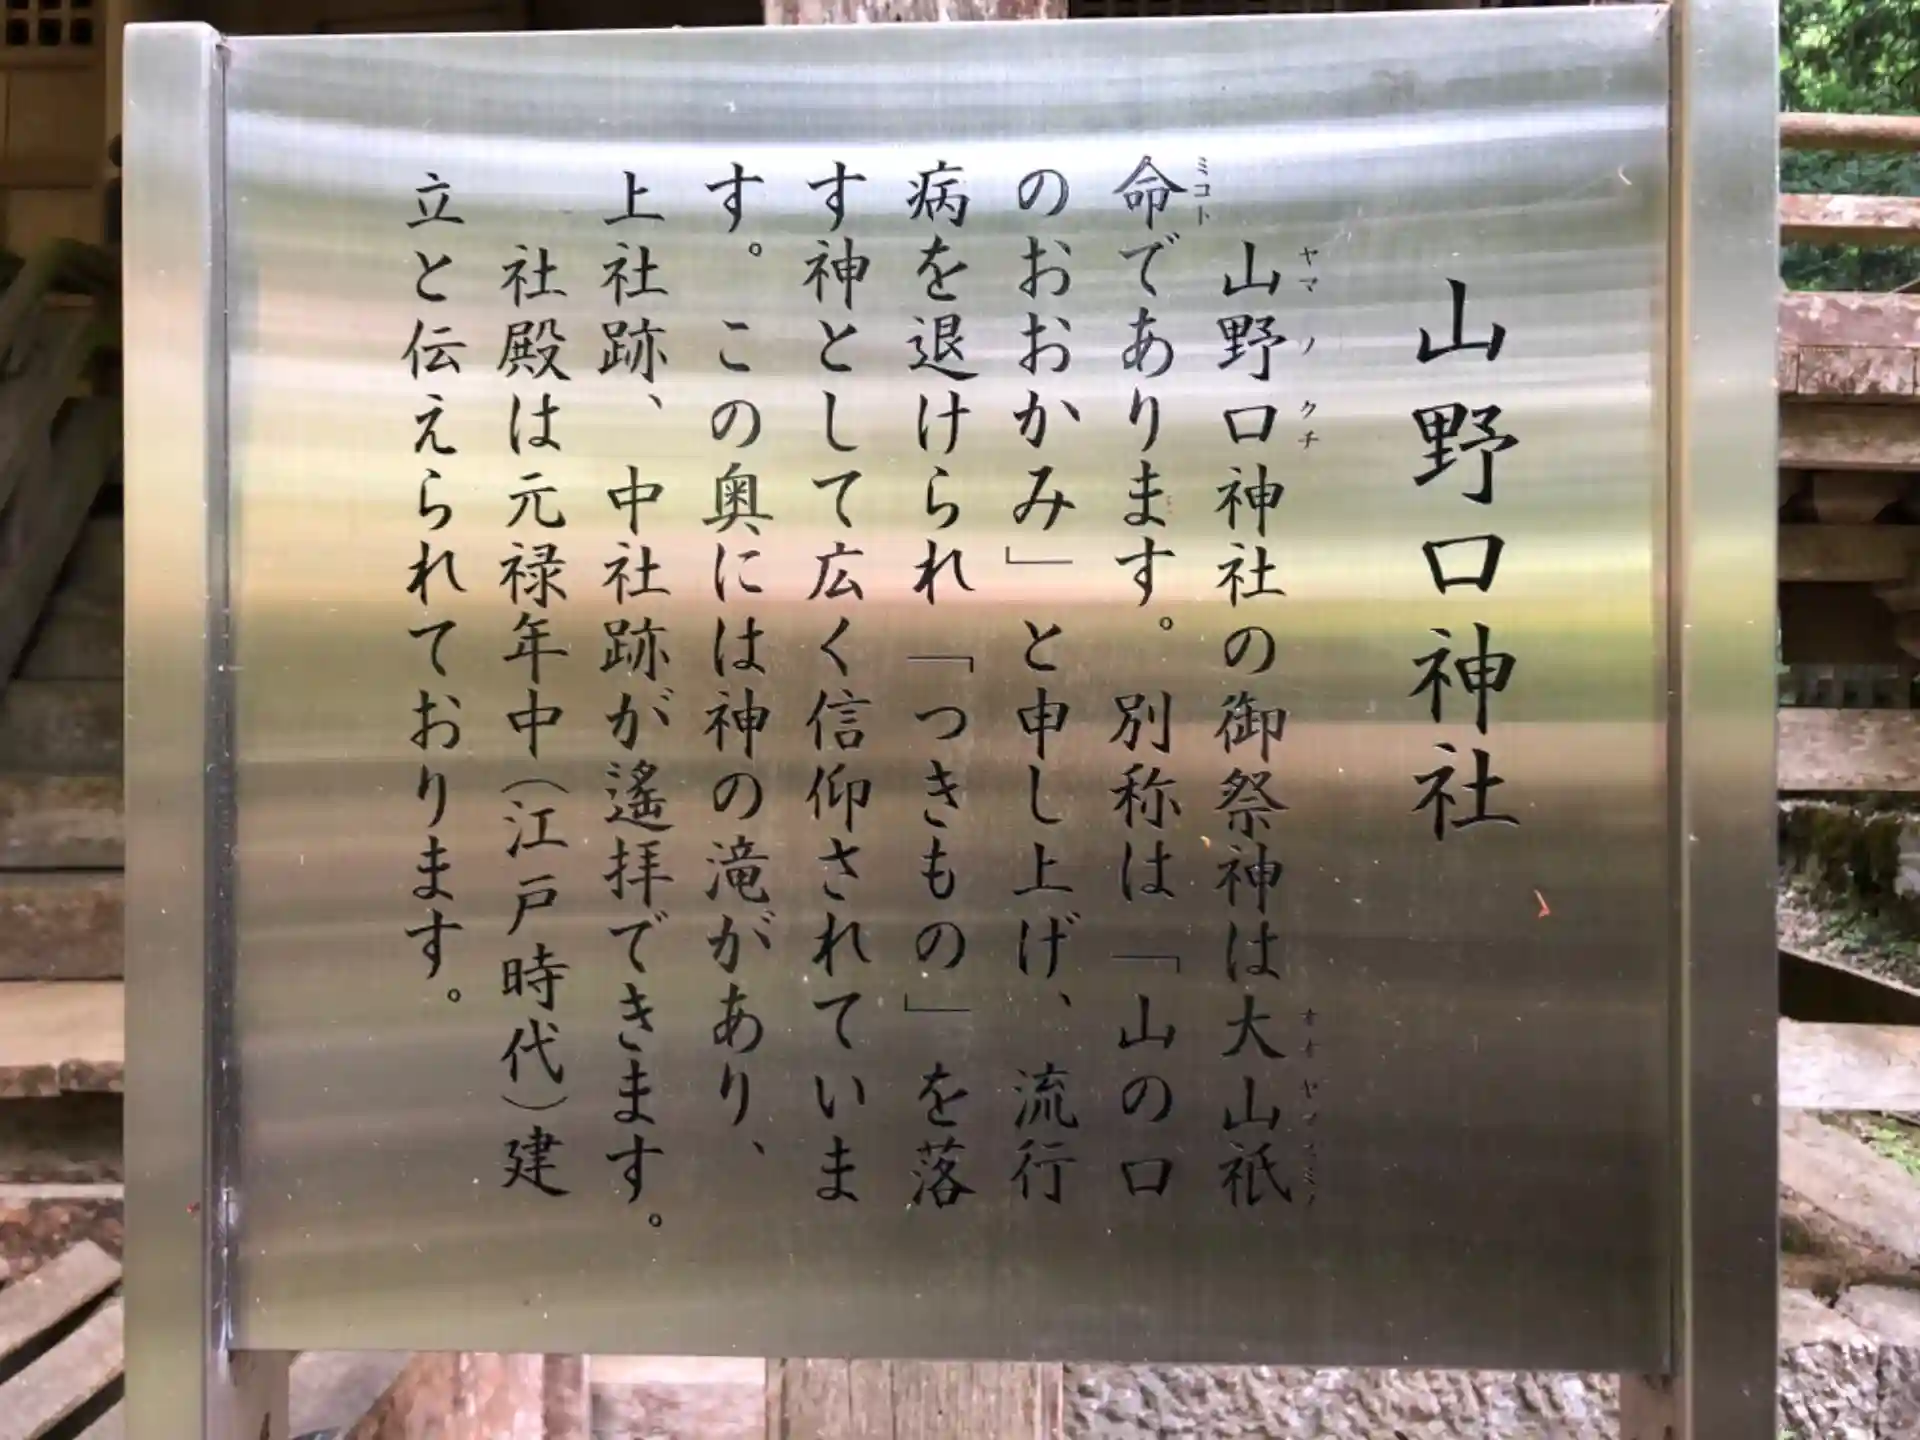 山野口神社
山野口神社の御祭神は大山祇
命であります。別称は「山の口
のおおかみ」と申し上げ、流行
病を退けられ「つきもの」を落
す神として広く信仰されていま
す。この奥には神の滝があり、
上社跡、中社跡が遙拝できます。
社殿は元禄年中(江戸時代)建
立と伝えられております。
ヤマノクチ
ミコト